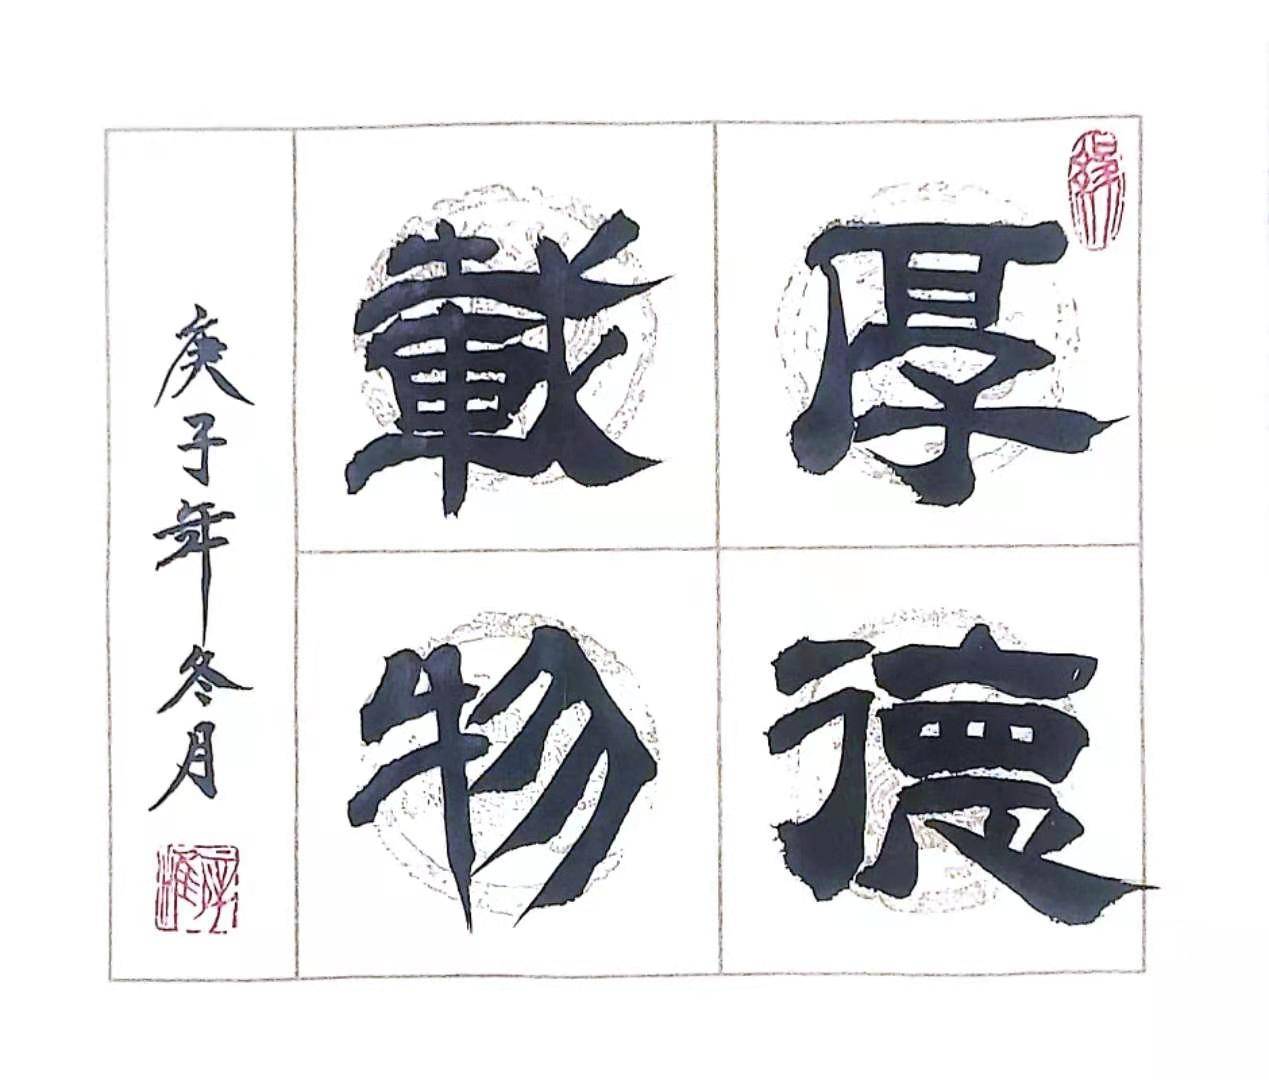 厚德
載物
庚子年冬月